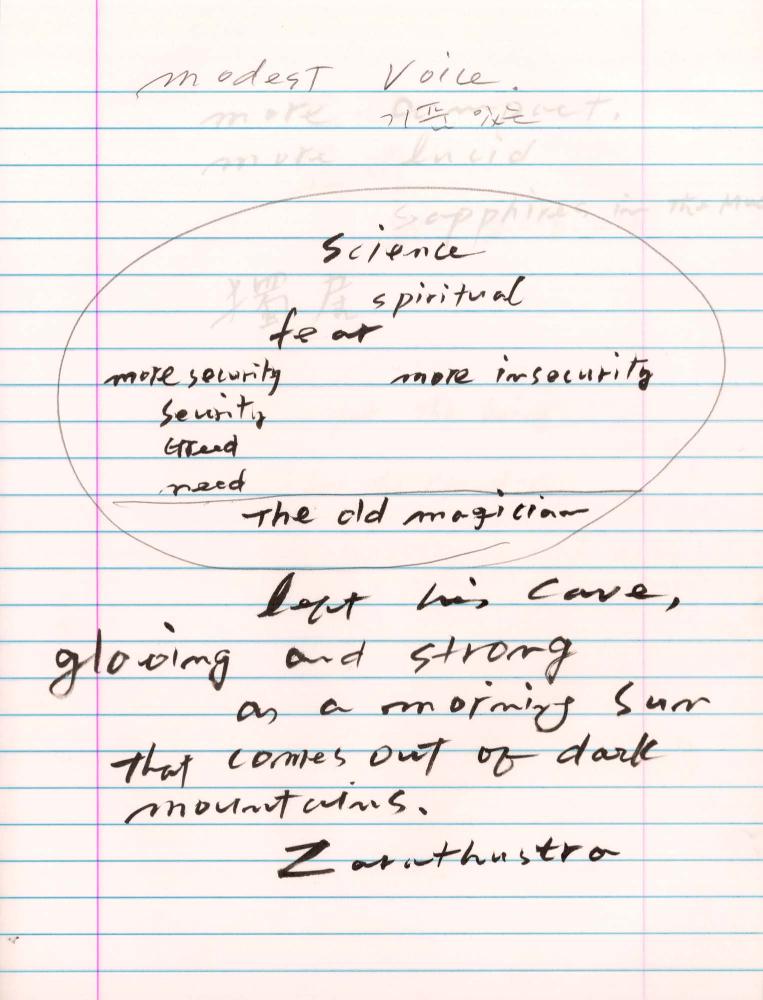 modest Voice.
기품 있는
more compact.
more lucid
sapphires in the Mu
Science
獨居
spiritual
fear
more security more insecurity
Seurity
Greed
need
The old magician
left his cave,
glooing and strong
as a morning sun
that comes out of dark
mountains.
Zarathustra